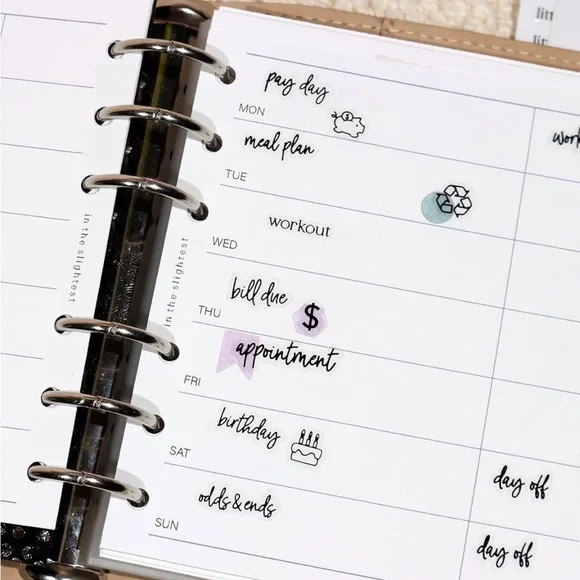 litt
li
pay day
MON
meal plan
work
TUE
workout
WED
bill due
$
THU
appointment
FRI
birthday
SAT
day off
odds & ends
SUN
day off
in the slightest
in the slightest